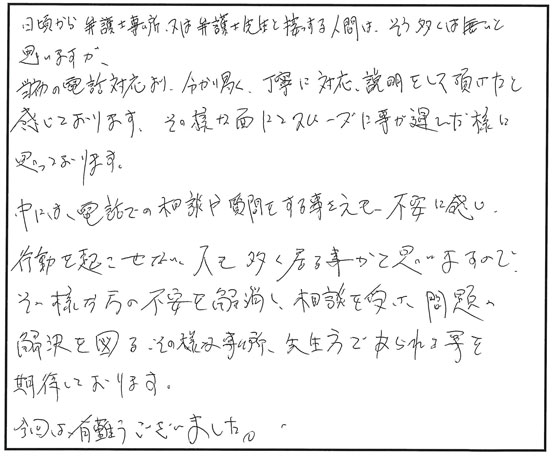 日頃から弁護士事ム所、又は弁護士先生と接する人間は、そう多くは無いと
思いますが、
当初の電話対応より、分かり易く、丁寧に対応、説明をして頂けたと
感じております。その様な面にてスムーズに事が運んだ様に
思っております。
中には、電話での相談や質問をする事さえも不安に感じ、
行動を起こせない人も多く居る事かと思いますので、
その様な方の不安を解消し、相談を受け、問題の
解決を図る、その様な事ム所、先生方であられる事を
期待しております。
今回は有難うございました。